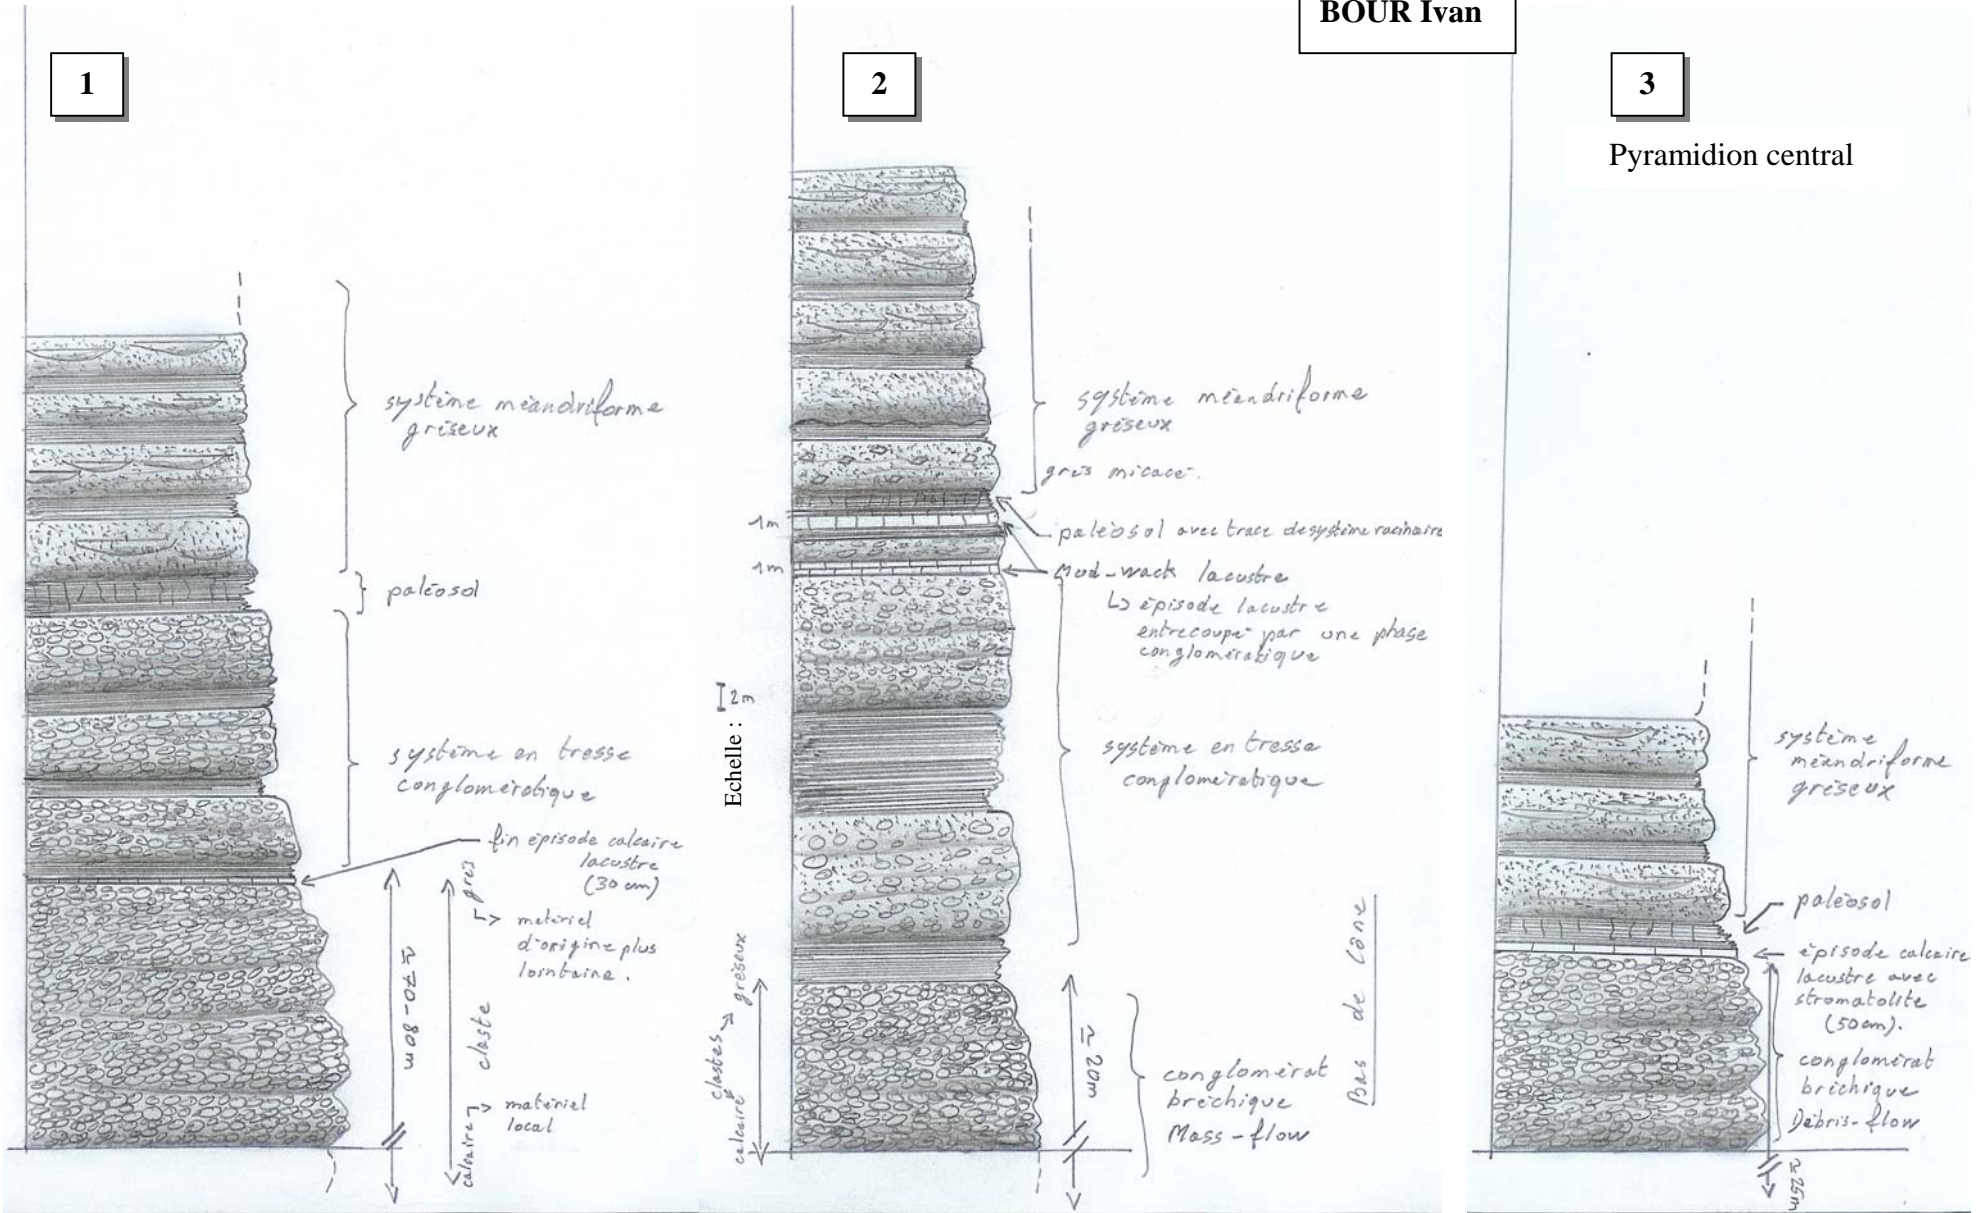 BOUR Ivan
1
système méandriforme
gréseux
paléosol
système en tresse
conglomératique
fin épisode calcaire
lacustre
(30 cm)
≈ 70-80m
grès
↳ matériel
d'origine plus
lointaine.
claste
calcaire
↳ matériel
local
2
système méandriforme
gréseux
grès micacé.
1m
paléosol avec trace de système racinaire
1m
Mud-wack lacustre
↳ épisode lacustre
entrecoupé par une phase
conglomératique
Echelle : 2m
système en tresse
conglomératique
clastes
calcaire
gréseux
≈ 20m
conglomérat
bréchique
Mass-flow
Bas de Cône
3
Pyramidion central
système
méandriforme
gréseux
paléosol
épisode calcaire
lacustre avec
stromatolite
(50cm).
conglomérat
bréchique
Débris-flow
≈ 25m